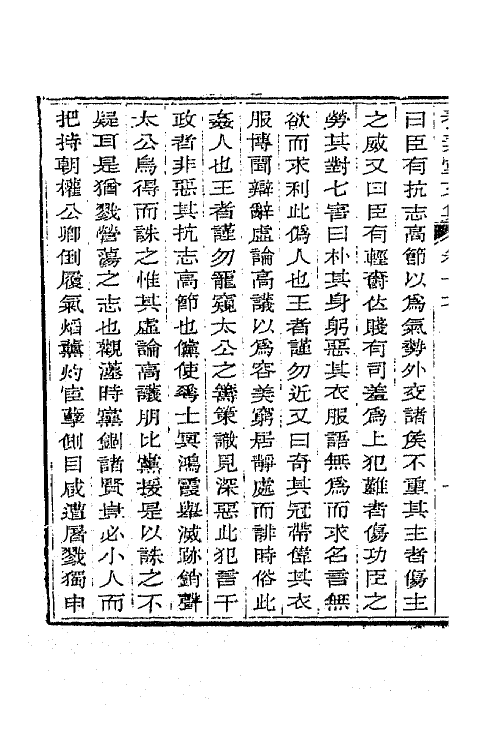 曰臣有抗志高節以爲氣勢外交諸侯不重其主者傷主
之威又曰臣有輕爵位賤有司羞爲上犯難者傷功臣之
勞其對七害曰朴其身躬惡其衣服語無爲而求名言無
欲而求利此僞人也王者謹勿近又曰奇其冠帶偉其衣
服博聞辯辭虛論高議以爲容美窮居靜處而誹時俗此
姦人也王者謹勿寵窺太公之籌策識見深惡此犯害干
政者非惡其抗志高節也儻使爲士冥鴻霞舉滅跡銷聲
太公烏得而誅之惟其虛論高議朋比黨援是以誅之不
疑耳是猶戮營蕩之志也觀漢時黨錮諸賢豈必小人而
把持朝權公卿倒履氣焰薰灼宦孽側目咸遭屠戮獨申